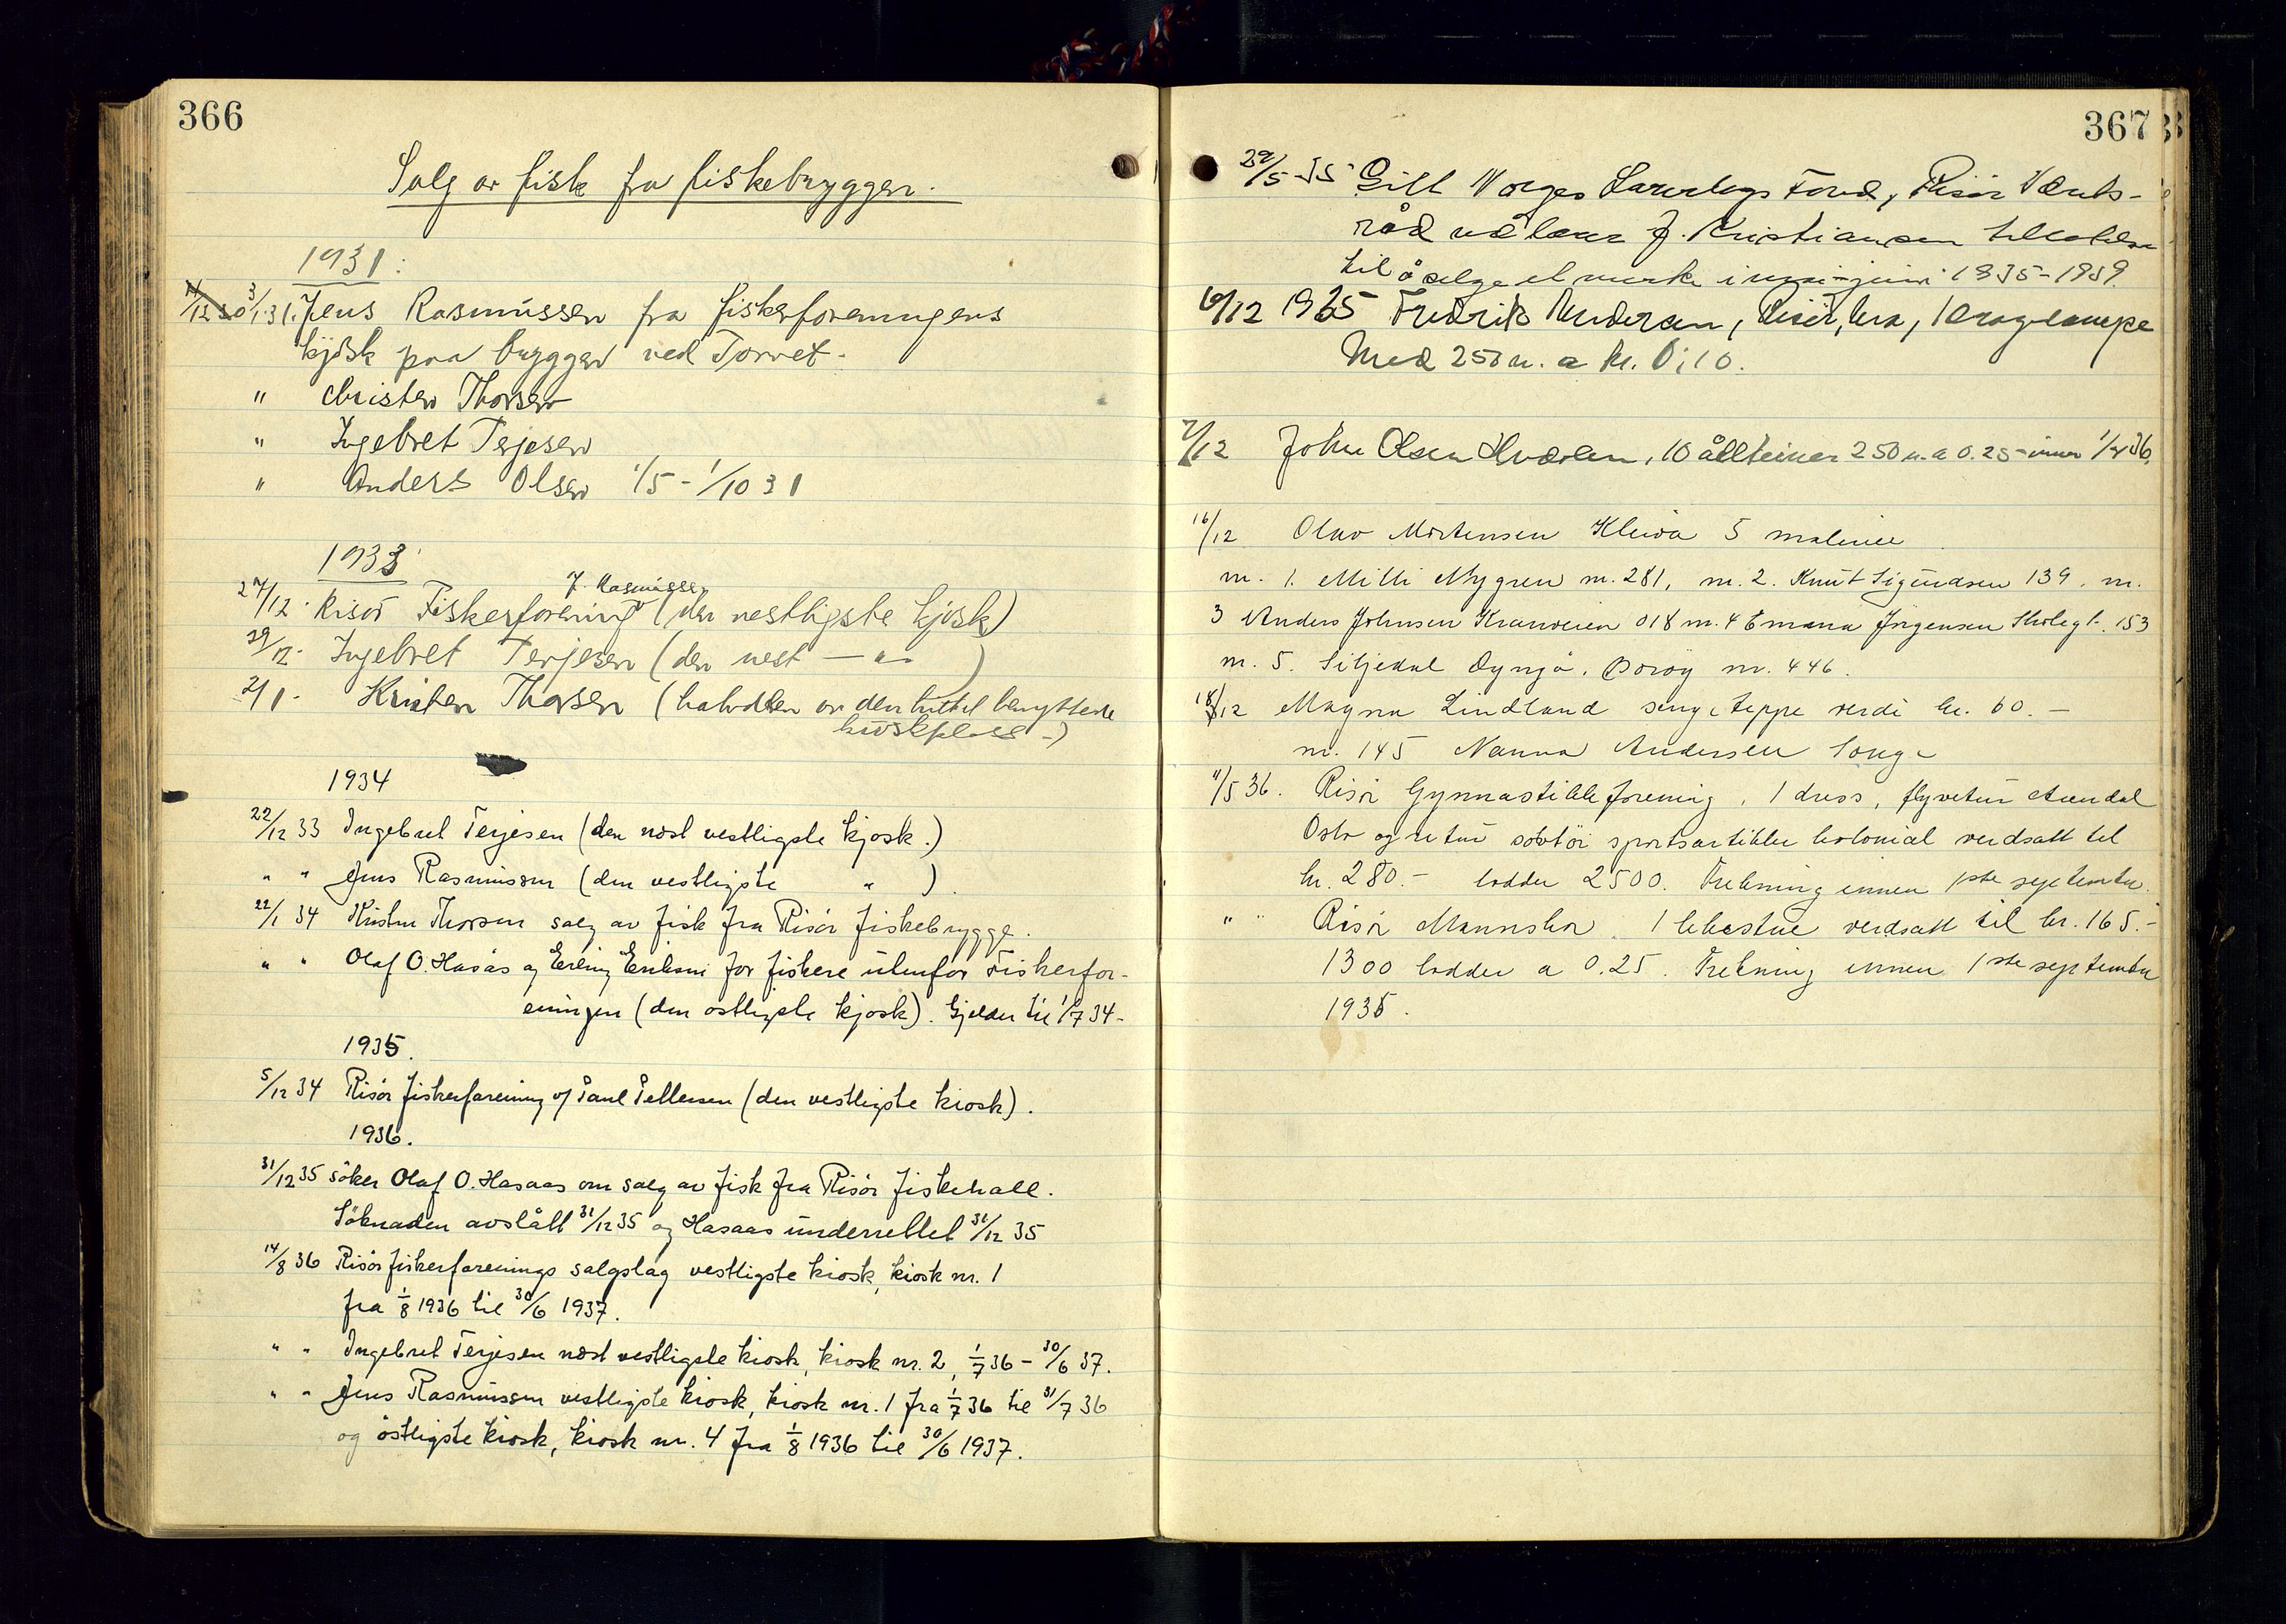 366
Salg av fisk fra fiskebryggen.
1931:
11/12 30 3/1·31. Jens Rasmussen fra fiskerforeningens
kjøsk paa bryggen ved Torvet.
" Christen Thorsen
" Ingebret Terjesen
" Anders Olsen 1/5 - 1/10 31
1933
J. Rasmussen
27/12· Risør Fiskerforening (den vestligste kjøsk)
29/12· Ingebret Terjesen (den nest — " — )
2/1· Kristen Thorsen (halvdelen av den hittil benyttede
kioskplass -)
1934
22/12 33 Ingebret Terjesen (den næst vestligste kjosk.)
" " Jens Rasmussen (den vestligste " ).
22/1 34 Kristen Thorsen salg av fisk fra Risør fiskebrygge.
" " Olaf O. Hasås og Erling Eriksen for fiskere utenfor Fiskerfor-
eningen (den østligste kjosk). Gjelder til 1/7 34-
1935.
5/12 34 Risør fiskerforening v/ Paul Pettersen (den vestligste kiosk).
1936.
31/12 35 søker Olaf O. Hasaas om salg av fisk fra Risør fiskehall.
Søknaden avslått 31/12 35 og Hasaas underrettet 31/12 35
14/8 36 Risør fiskerforenings salgslag vestligste kiosk, kiosk nr. 1
fra 1/8 1936 til 30/6 1937.
" " Ingebret Terjesen næst vestligste kiosk, kiosk nr. 2, 1/7 36 - 30/6 37.
" " Jens Rasmussen vestligste kiosk, kiosk nr. 1 fra 1/7 36 til 31/7 36
og østligste kiosk, kiosk nr. 4 fra 1/8 1936 til 30/6 1937.
367
29/5-35 Gitt Norges Fond, Risør
råd ved J. Kristiansen tillatelse
til å selge et merke i mai-juni 1935-1939
10/12 1935 Fredrik Andersen, Risør,
Med 250 n. a kr. 0,10.
7/12 John Olsen , 10 ålteiner 250 n. a 0.25 innen 1/4 36.
16/12 Olav Mortensen Kleiva 5 malerier
nr. 1. Milli Nygren nr. 281, nr. 2. Knut Sigurdsen 139. nr.
3 Anders Johnsen Kranveien 018 nr. 4 Emma Jørgensen Skolegt. 153
nr. 5. Siljedal , Barøy nr. 446.
18/12 Magna Lindland sengeteppe verdi kr. 60.—
nr. 145 Nanna Andersen Songe
11/5 36. Risør Gymnastikkforening, 1 dress, flyvetur Arendal
Oslo og retur sølvtøi sportsartikler kolonial verdsatt til
kr. 280.- lodder 2500. Trekning innen 1ste september.
" " Risør Mannskor. 1 lekestue verdsatt til kr. 165.-
1300 lodder a 0.25. Trekning innen 1ste september
1936.